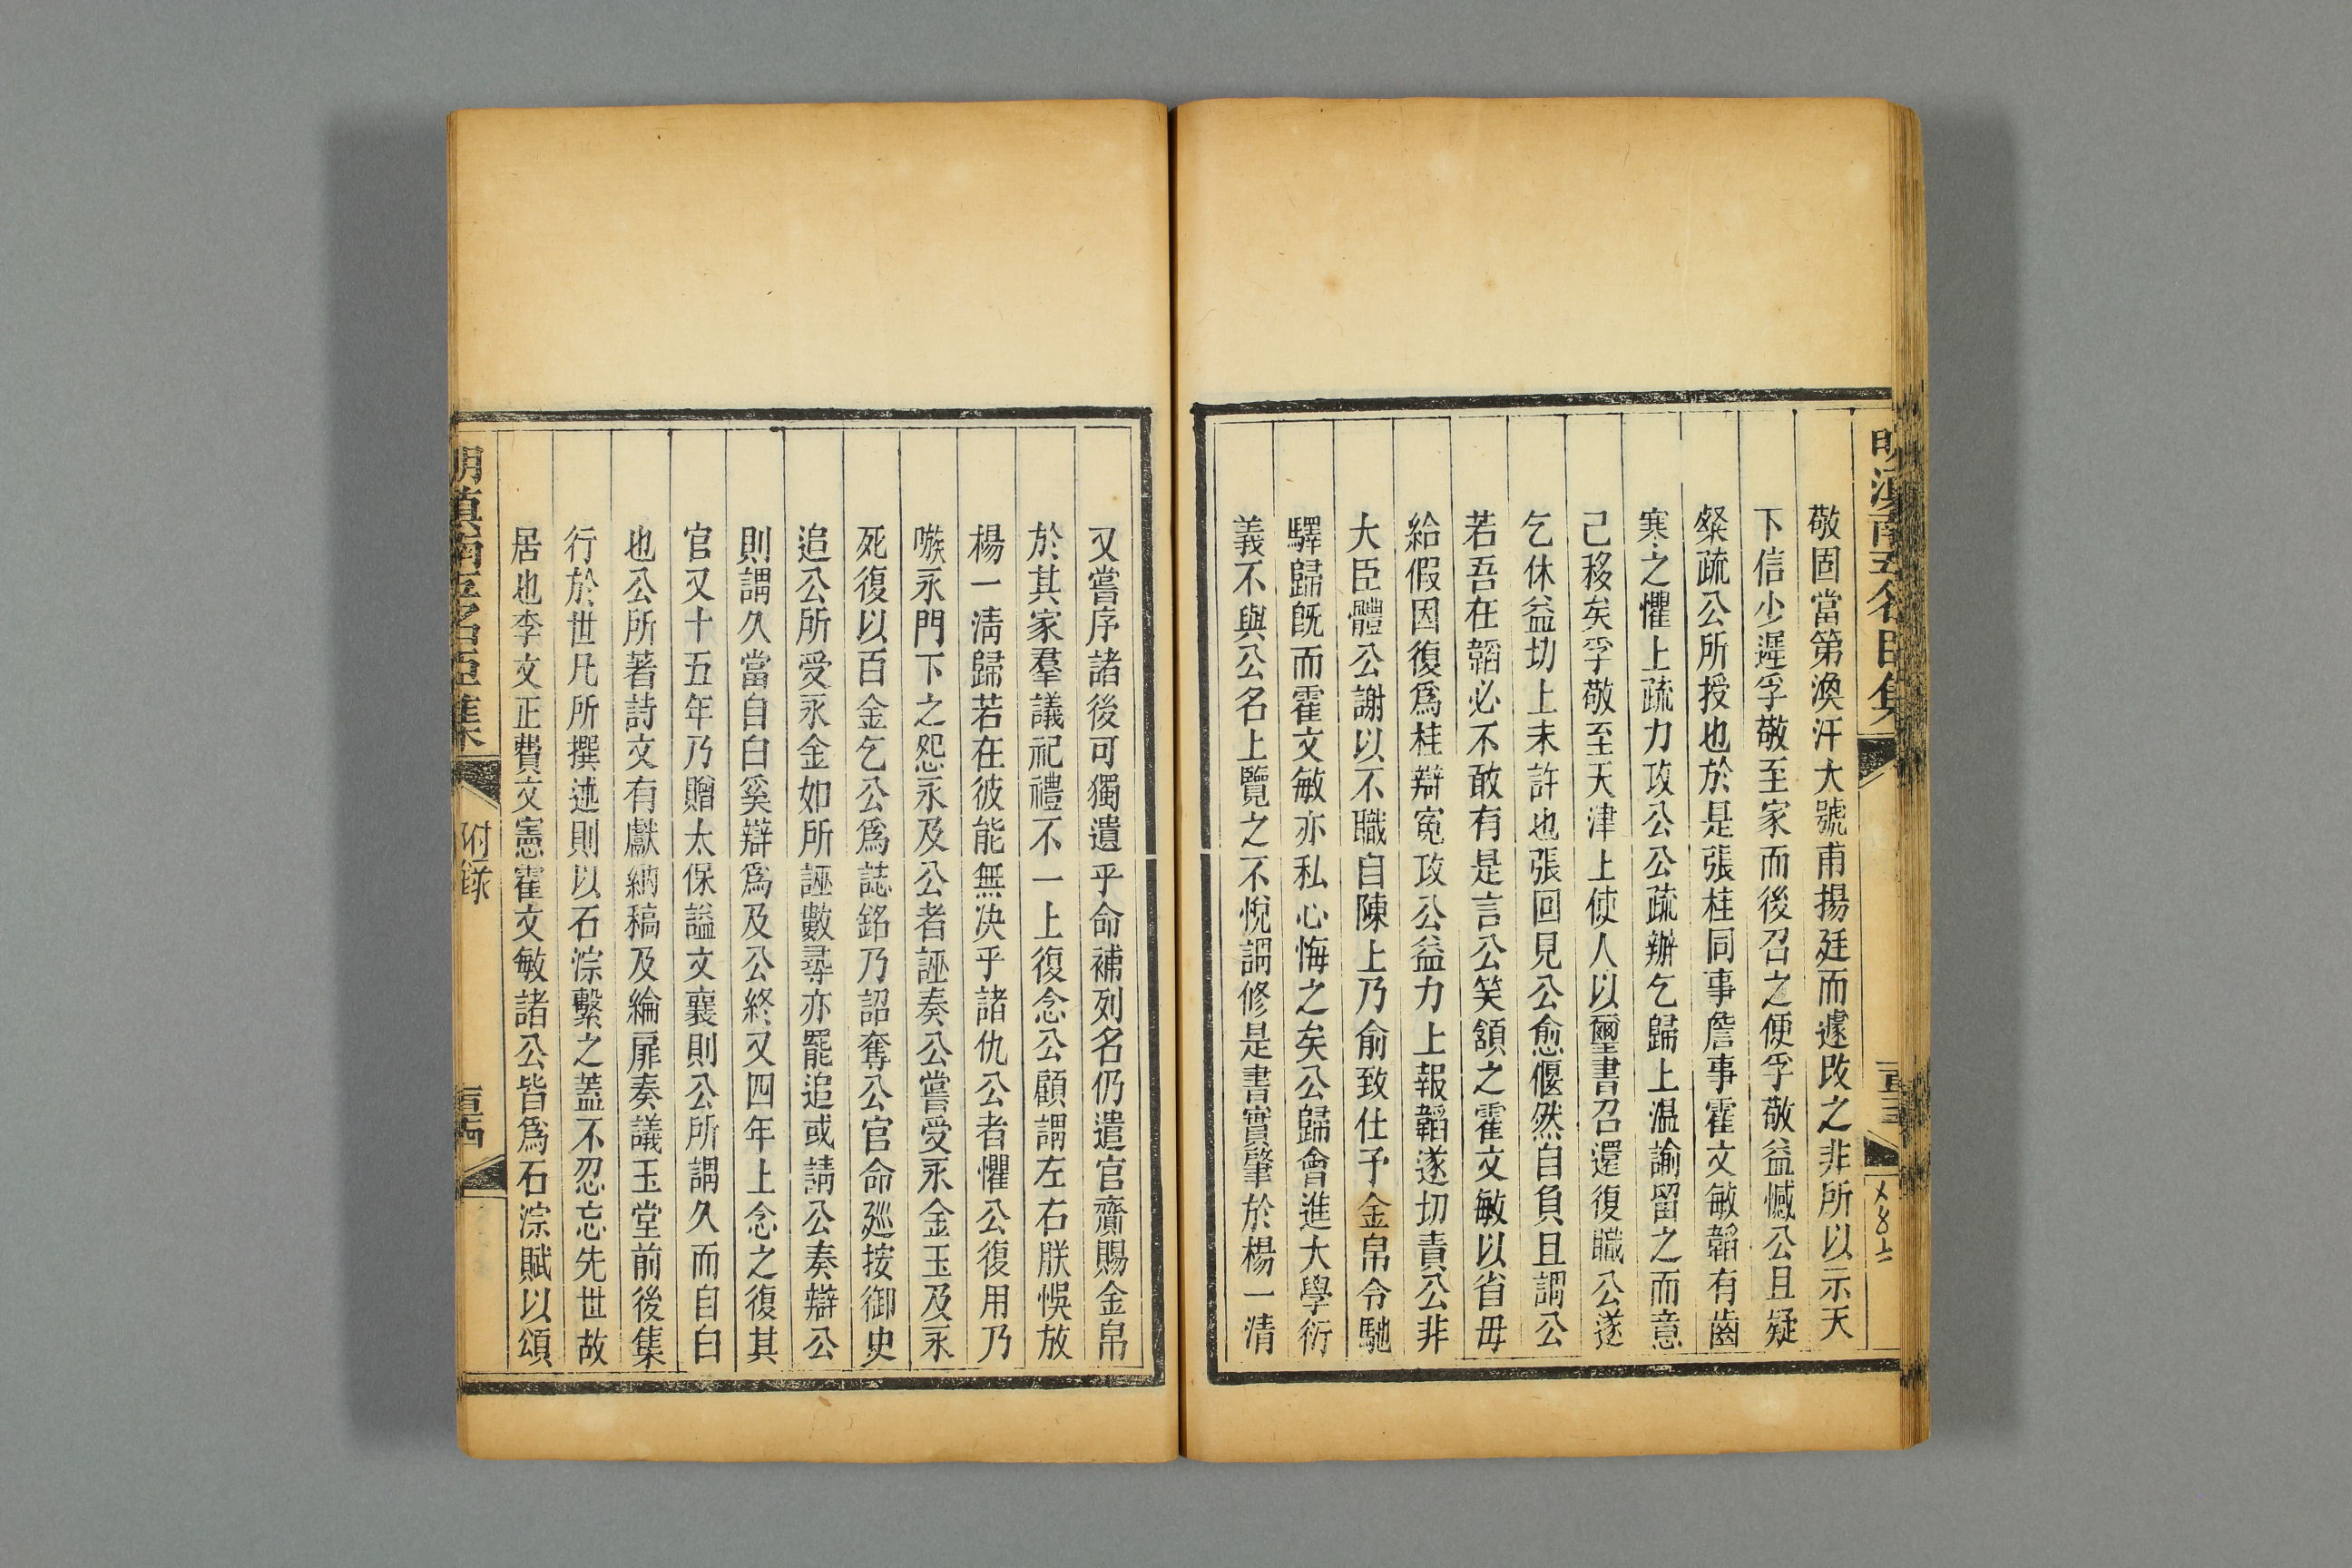 敬固當第渙汗大號甫揚廷而遽改之非所以示天
下信少遲孚敬至家而後召之便孚敬益憾公且疑
粲疏公所授也於是張桂同事詹事霍文敏韜有齒
寒之懼上疏力攻公公疏辦乞歸上温諭留之而意
己移矣孚敬至天津上使人以璽書召還復職公遂
乞休益切上未許也張回見公愈偃然自負且謂公
若吾在韜必不敢有是言公笑頷之霍文敏以省毋
給假因復爲桂辯寃攻公益力上報韜遂切責公非
大臣體公謝以不職自陳上乃俞致仕予金帛令馳
驛歸旣而霍文敏亦私心悔之矣公歸會進大學衍
義不與公名上覽之不悅謂修是書實肇於楊一清
又嘗序諸後可獨遺乎命補列名仍遣官齎賜金帛
於其家羣議祀禮不一上復念公顧謂左右朕悞放
楊一淸歸若在彼能無决乎諸仇公者懼公復用乃
嗾永門下之怨永及公者誣奏公嘗受永金玉及永
死復以百金乞公爲誌銘乃詔奪公官命廵按御史
追公所受永金如所誣數尋亦罷追或請公奏辯公
則謂久當自白奚辯爲及公終又四年上念之復其
官又十五年乃贈太保謚文襄則公所謂久而自白
也公所著詩文有獻納稿及綸扉奏議玉堂前後集
行於世凡所撰述則以石淙繫之蓋不忍忘先世故
居也李文正費文憲霍文敏諸公皆爲石淙賦以頌
明滇南五名臣集
附錄